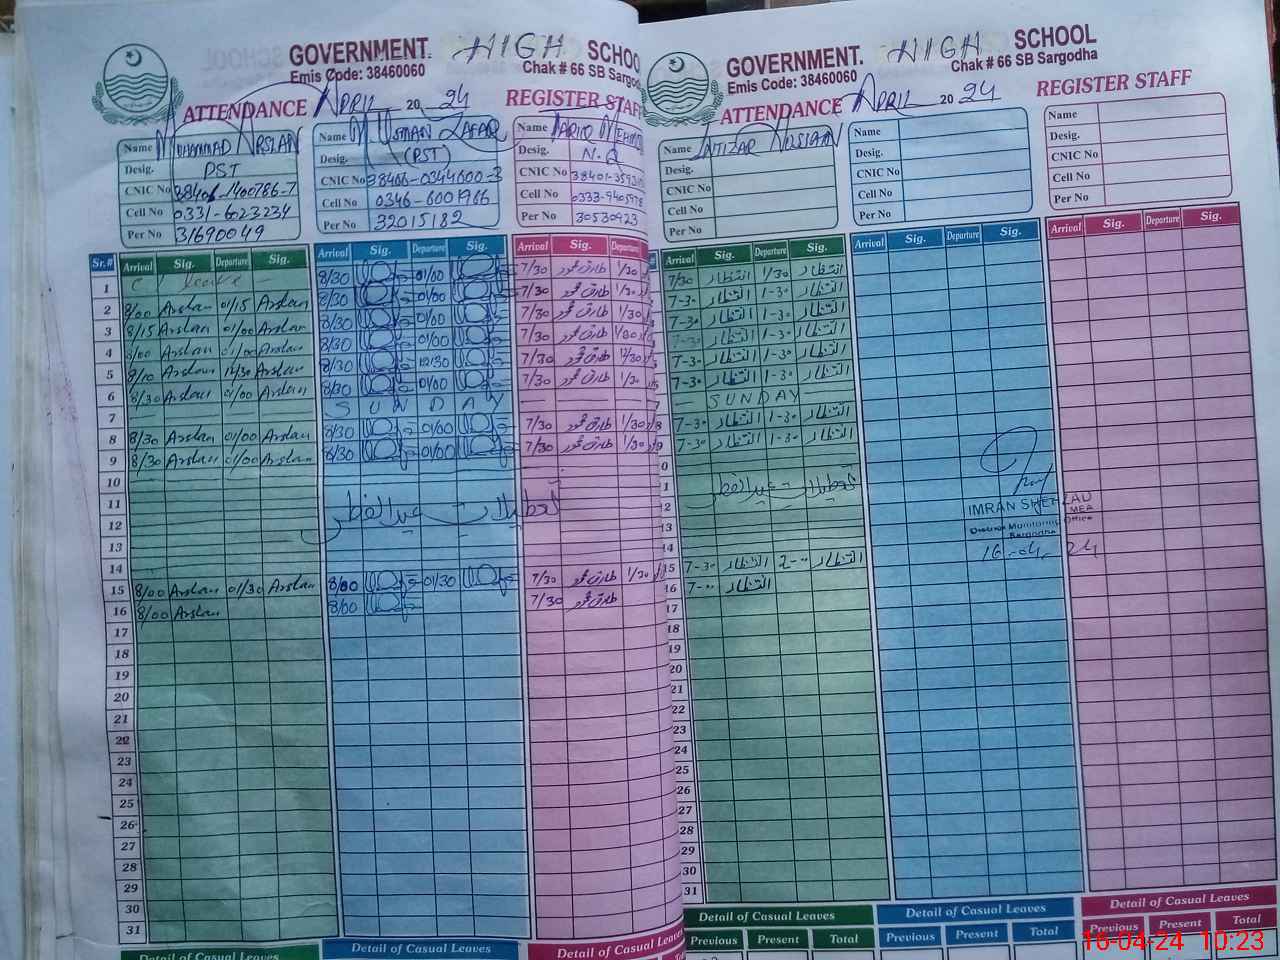 GOVERNMENT. HIGH SCHOO
Emis Code: 38460060 Chak # 66 SB Sargodha
ATTENDANCE APRIL 2024 REGISTER STAFF
Name MUHAMMAD ARSLAN
Desig. PST
CNIC No
Cell No 0331-6023234
Per No 31690049
Name M. USMAN ZAFAR
Desig. (PST)
CNIC No
Cell No 0346-6001966
Per No 32015182
Name TARIQ
Desig. N.Q
CNIC No
Cell No
Per No 30530923
Sr.# Arrival Sig. Departure Sig. Arrival Sig. Departure Sig. Arrival Sig. Departure
1 C / leave 8/30 01/00 7/30 طارق محمود 1/30
2 8/00 Arslan 01/15 Arslan 8/30 01/00 7/30 طارق محمود 1/30
3 8/15 Arslan 01/00 Arslan 8/30 01/00 7/30 طارق محمود 1/30
4 8/00 Arslan 01/00 Arslan 8/30 01/00 7/30 طارق محمود 1/30
5 8/10 Arslan 12/30 Arslan 8/30 12/30 7/30 طارق محمود 12/30
6 8/30 Arslan 01/00 Arslan 8/30 01/00 7/30 طارق محمود 1/30
7 SUNDAY
8 8/30 Arslan 01/00 Arslan 8/30 01/00 7/30 طارق محمود 1/30
9 8/30 Arslan 01/00 Arslan 8/30 01/00 7/30 طارق محمود 1/30
10
11 تعطیلات عیدالفطر
12
13
14
15 8/00 Arslan 01/30 Arslan 8/00 01/30 7/30 طارق محمود 1/30
16 8/00 Arslan 8/00 7/30 طارق محمود
17
18
19
20
21
22
23
24
25
26
27
28
29
30
31
Detail of Casual Leaves Detail of Casual Leaves Detail of Casual Leaves
GOVERNMENT. HIGH SCHOOL
Emis Code: 38460060 Chak # 66 SB Sargodha
ATTENDANCE APRIL 2024 REGISTER STAFF
Name INTIZAR HUSSAIN
Desig.
CNIC No
Cell No
Per No
Name
Desig.
CNIC No
Cell No
Per No
Name
Desig.
CNIC No
Cell No
Per No
Arrival Sig. Departure Sig. Arrival Sig. Departure Sig. Arrival Sig. Departure Sig.
7/30 انتظار 1/30 انتظار
7-30 انتظار 1-30 انتظار
7-30 انتظار 1-30 انتظار
7-30 انتظار 1-30 انتظار
7-30 انتظار 1-30 انتظار
7-30 انتظار 1-30 انتظار
SUNDAY
8 7-30 انتظار 1-30 انتظار
9 7-30 انتظار 1-30 انتظار
0
1 تعطیلات عیدالفطر
2
IMRAN SHEHZAD
MEA
13
District Monitoring Office
Sargodha
14
16-04-24
15 7-30 انتظار 2-00 انتظار
16 7-00 انتظار
17
18
19
20
21
22
23
24
25
26
27
28
29
30
31
Detail of Casual Leaves Detail of Casual Leaves Detail of Casual Leaves
Previous Present Total Previous Present Total Previous Present Total
16-04-24 10:23